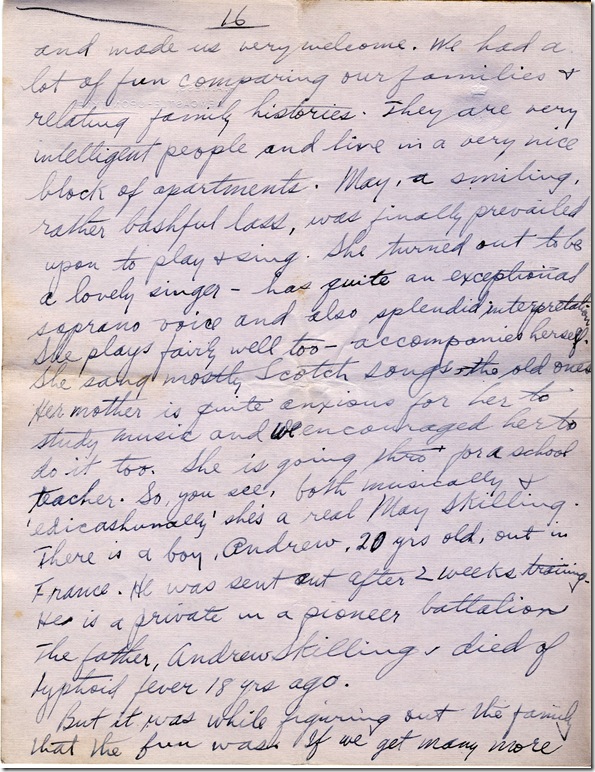 16
and made us very welcome. We had a
lot of fun comparing our families &
relating family histories. They are very
intelligent people and live in a very nice
block of apartments. May, a smiling,
rather bashful lass, was finally prevailed
upon to play & sing. She turned out to be
a lovely singer - has quite an exceptional
soprano voice and also splendid interpretation.
She plays fairly well too - accompanies herself.
She sang mostly Scotch songs - the old ones
Her mother is quite anxious for her to
study music and we encouraged her to
do it too. She is going thro' for a school
teacher. So, you see, both musically &
'edicashunally' she's a real May Skilling.
There is a boy, Andrew, 20 yrs old, out in
France. He was sent out after 2 weeks training.
He is a private in a pioneer battalion
The father, Andrew Skilling, died of
typhoid fever 18 yrs ago.
But it was while figuring out the family
that the fun was. If we get many more